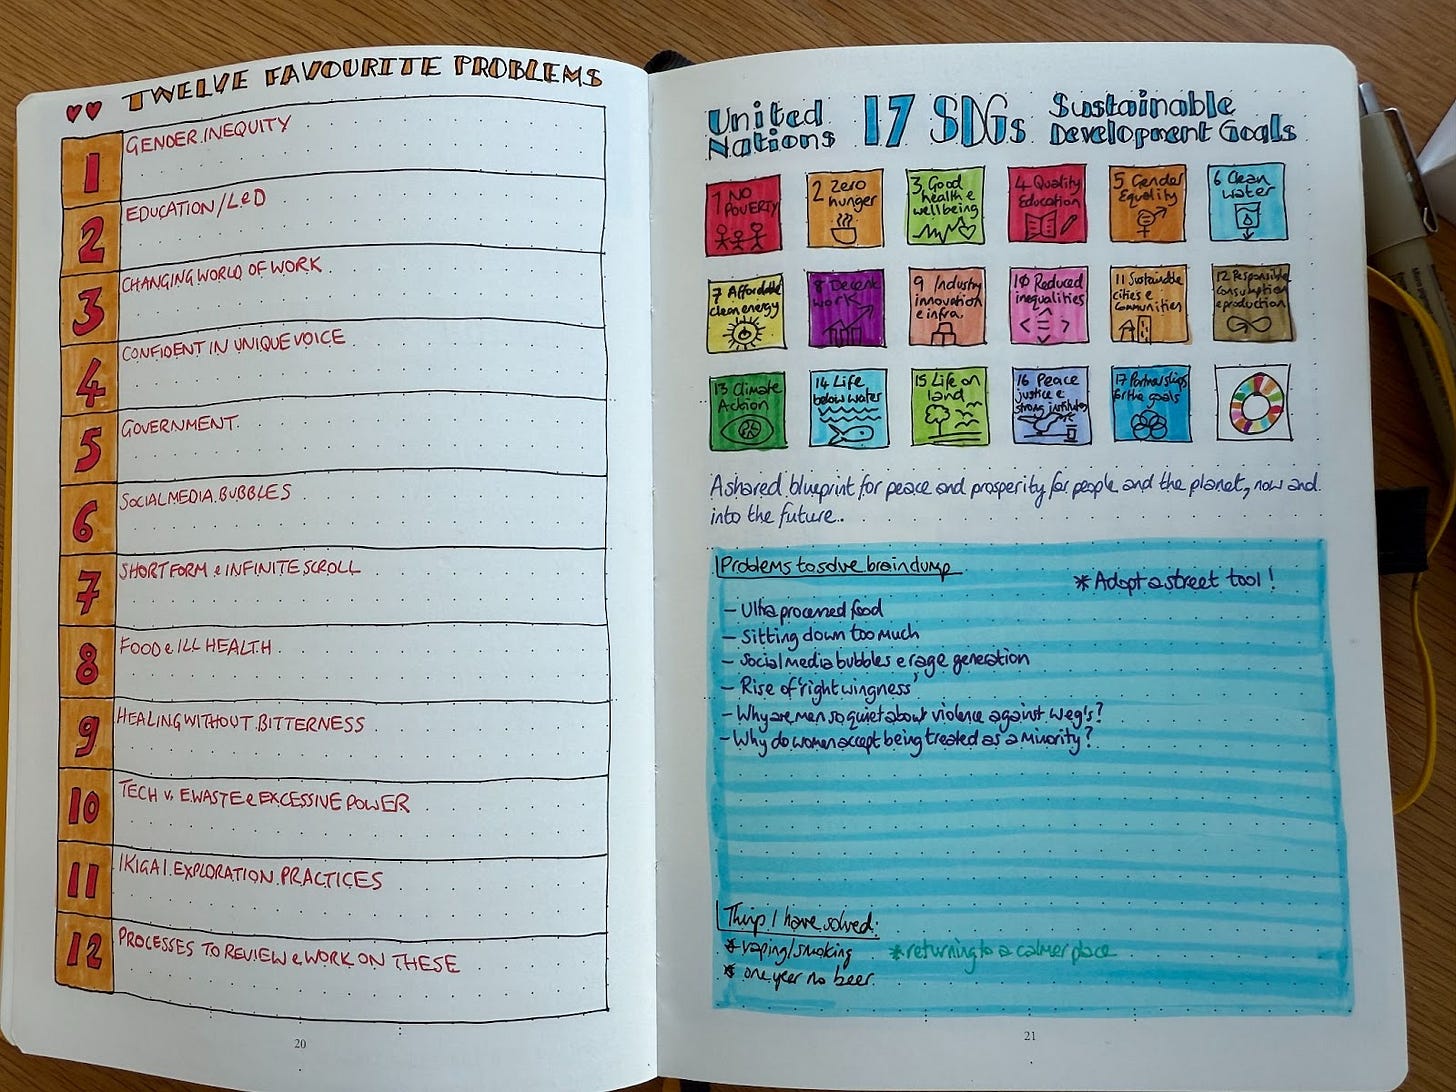 TWELVE FAVOURITE PROBLEMS
1
GENDER INEQUITY
2
EDUCATION/L&D
3
CHANGING WORLD OF WORK
4
CONFIDENT IN UNIQUE VOICE
5
GOVERNMENT
6
SOCIAL MEDIA BUBBLES
7
SHORT FORM & INFINITE SCROLL
8
FOOD & ILL HEALTH
9
HEALING WITHOUT BITTERNESS
10
TECH v. EWASTE & EXCESSIVE POWER
11
IKIGAI EXPLORATION PRACTICES
12
PROCESSES TO REVIEW & WORK ON THESE
20
United
Nations
17 SDGs
Sustainable
Development Goals
1 NO
POVERTY
2 Zero
hunger
3 Good
health &
wellbeing
4 Quality
Education
5 Gender
Equality
6 Clean
water
7 Affordable
clean energy
8 Decent
work
9 Industry
innovation
& infra.
10 Reduced
inequalities
11 Sustainable
cities &
communities
12 Responsible
consumption
& production
13 Climate
Action
14 Life
below water
15 Life on
land
16 Peace
justice &
strong institutes
17 Partnerships
for the goals
A shared blueprint for peace and prosperity for people and the planet, now and
into the future.
Problems to solve braindump
* Adopt a street tool!
- Ultra processed food
- Sitting down too much
- Social media bubbles & rage generation
- Rise of 'right wingness'
- Why are men so quiet about violence against W&G's?
- Why do women accept being treated as a minority?
Things I have solved:
* vaping/smoking
* returning to a calmer place
* one year no beer.
21